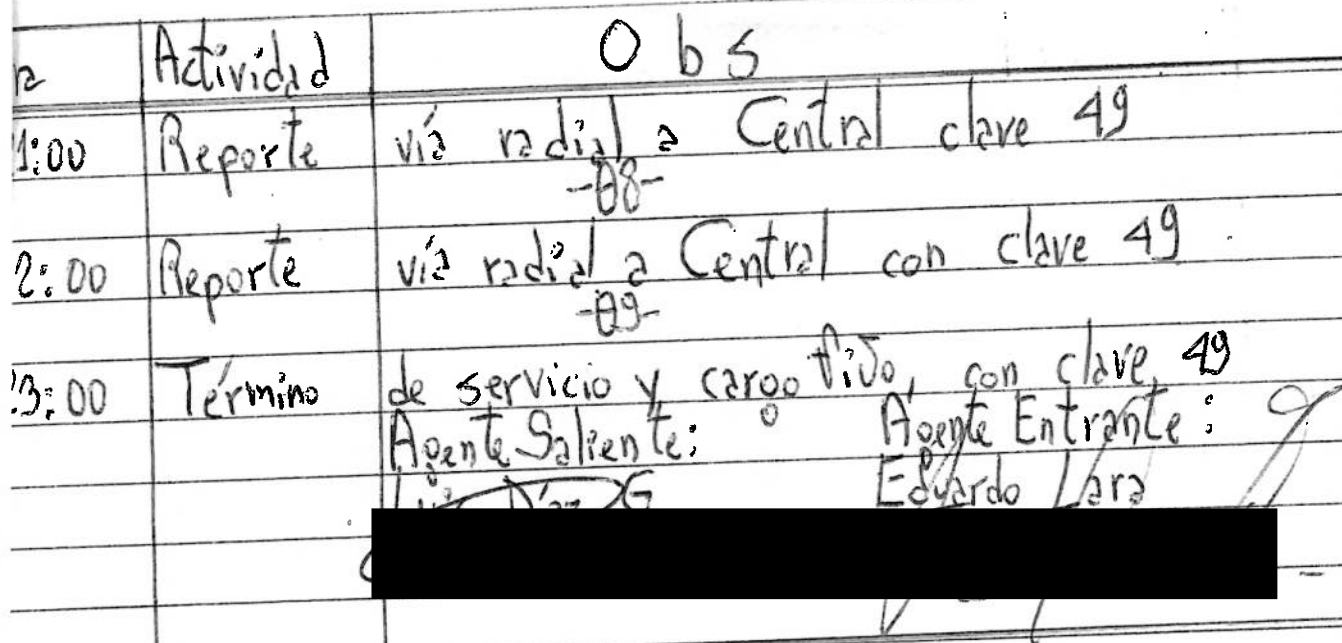 a Actividad Obs
1:00 Reporte vía radial a Central clave 49
-08-
2:00 Reporte vía radial a Central con clave 49
-09-
3:00 Término de servicio y cargo fijo, con clave 49
Agente Saliente: Agente Entrante:
Luis Díaz G Eduardo Lara